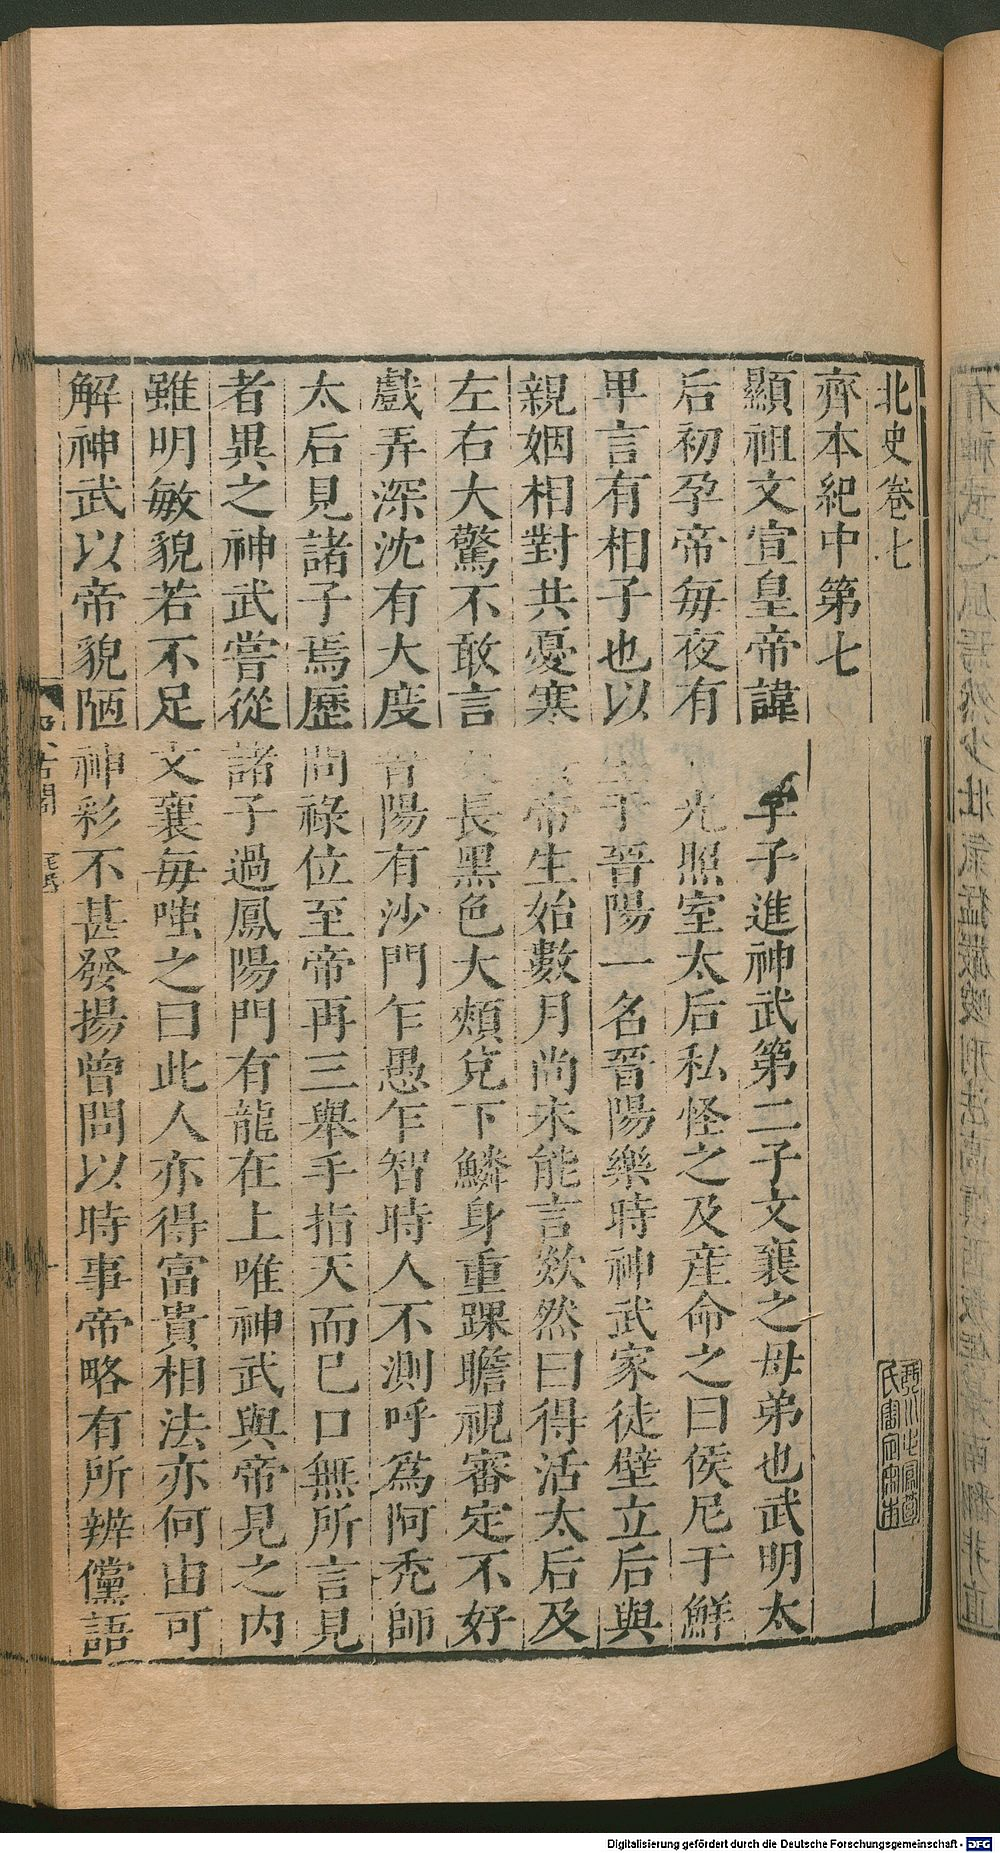 北史卷七
齊本紀中第七
顯祖文宣皇帝諱 字子進神武第二子文襄之母弟也武明太
后初孕帝每夜有 光照室太后私怪之及產命之曰侯尼于鮮
卑言有相子也以生于晉陽一名晉陽樂時神武家徒壁立后與
親姻相對共憂寒 帝生始數月尚未能言欻然曰得活太后及
左右大驚不敢言 長黑色大頰兌下鱗身重踝瞻視審定不好
戲弄深沈有大度晉陽有沙門乍愚乍智時人不測呼爲阿禿師
太后見諸子焉歷問祿位至帝再三舉手指天而巳口無所言見
者異之神武嘗從諸子過鳳陽門有龍在上唯神武與帝見之內
雖明敏貌若不足文襄每嗤之曰此人亦得富貴相法亦何由可
解神武以帝貌陋神彩不甚發揚曾問以時事帝略有所辨儻語
Digitalisierung gefördert durch die Deutsche Forschungsgemeinschaft - DFG